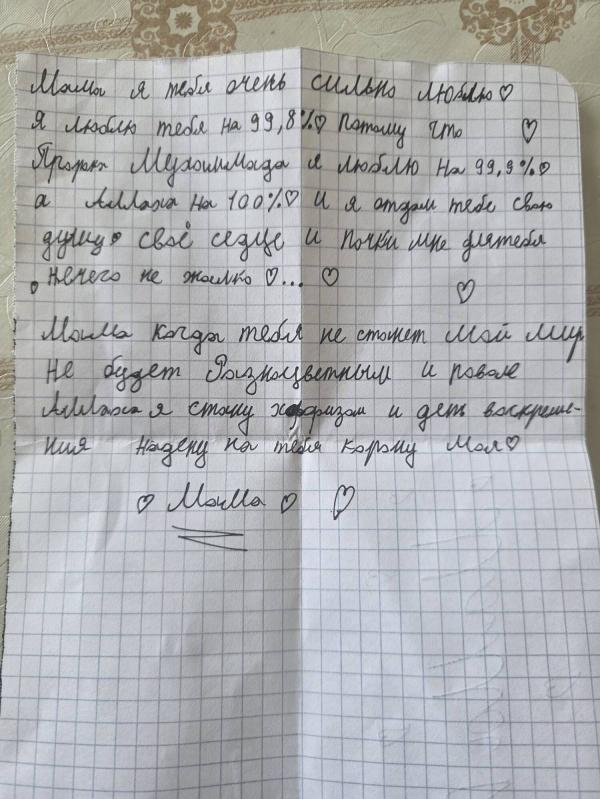 Мама я тебя очень сильно люблю♡
Я люблю тебя на 99,8%♡ Потому что ♡
Пророк Мухаммада я люблю на 99,9%♡
а Аллаха на 100%♡ и я отдам тебе свою
душу своё седце и почки мне длятебя
нечего не жалко ♡... ♡ ♡
Мама когда тебя не станет мой мир
не будет Разноцветным и
Аллаха я стану хафизом и день воскреше-
ния надену на тебя корону Мам♡
♡ Мама ♡ ♡